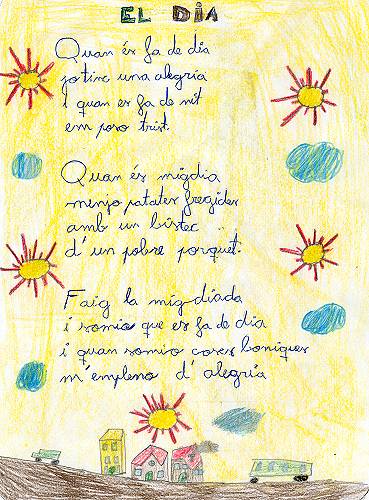 EL DIA
Quan és fa de dia
jo tinc una alegria
i quan es fa de nit
em poso trist.
Quan és migdia
menjo patates fregides
amb un bistec
d'un pobre porquet.
Faig la mig-diada
i somio que es fa de dia
i quan somio coses boniques
m'empleno d'alegría